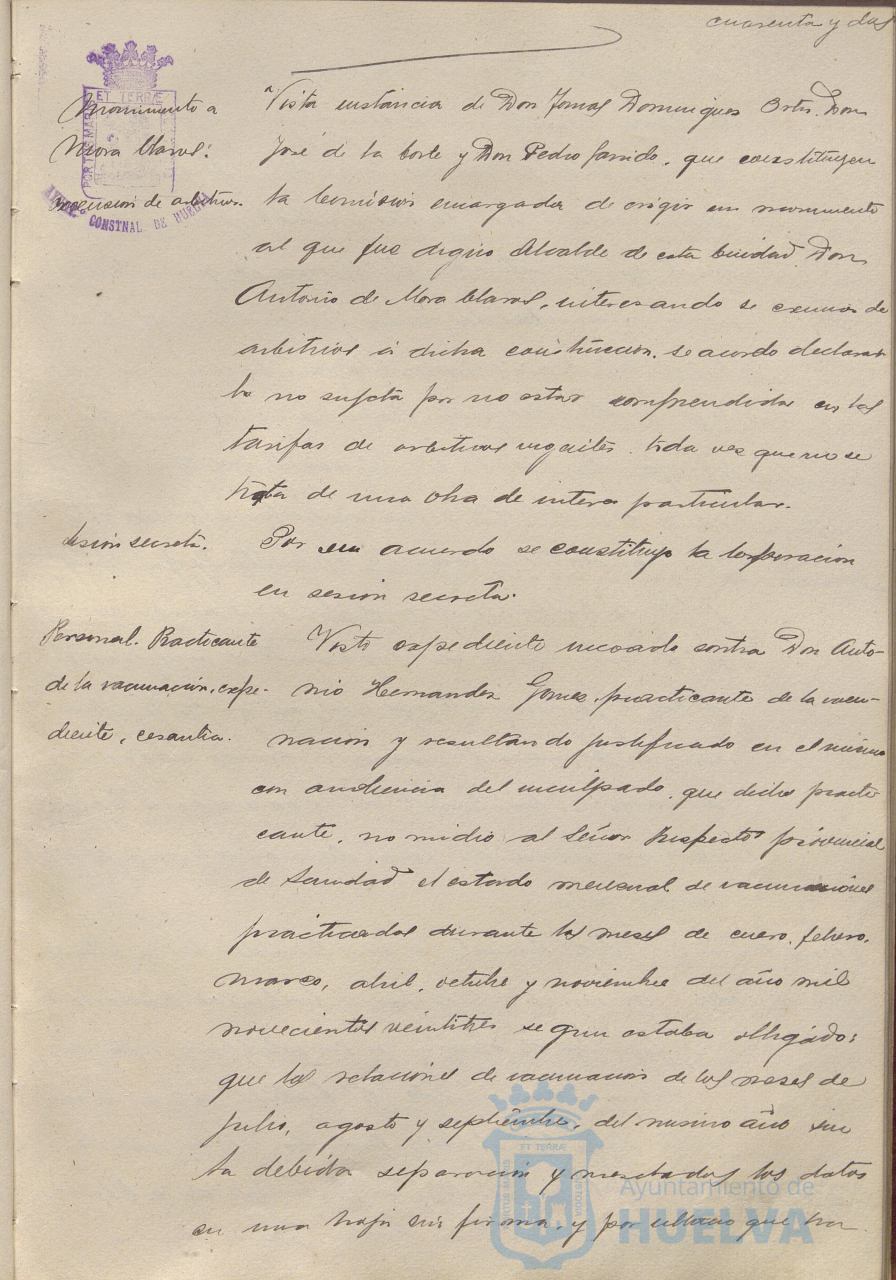 cuarenta y dos
Monumento a
Mora Claros:
exencion de arbitrios.
ET TERRÆ
PORTUS MARIS
AYUNT. CONSTNAL DE HUELVA
Vista instancia de Don Tomas Dominguez Ortiz, Don
José de la Corte y Don Pedro Garrido, que constituyen
la Comision encargada de erigir un monumento
al que fue digno Alcalde de esta Ciudad Don
Antonio de Mora Claros, interesando se exima de
arbitrios á dicha construccion, se acordo declarar
la no sujeta por no estar comprendida en las
tarifas de arbitrios vigentes, toda vez que no se
trata de una obra de interes particular.
Sesion secreta.
Por su acuerdo se constituyo la Corporacion
en sesion secreta.
Personal. Practicante
de la vacunacion, expe-
diente, cesantia.
Visto expediente incoado contra Don Anto-
nio Hernandez Gomez, practicante de la vacu-
nacion y resultando justificado en el mismo
con audiencia del inculpado, que dicho practi-
cante, no rindio al Señor Inspector provincial
de Sanidad el estado mensual de vacunaciones
practicadas durante los meses de enero, febrero,
marzo, abril, octubre y noviembre del año mil
novecientos veintitres segun estaba obligado:
que las relaciones de vacunacion de los meses de
julio, agosto y septiembre, del mismo año sin
la debida separacion y mezclados los datos
en una hoja sin firma, y por ultimo que ha
ET TERRÆ
PORTUS MARIS
CUSTODIA
Ayuntamiento de
HUELVA